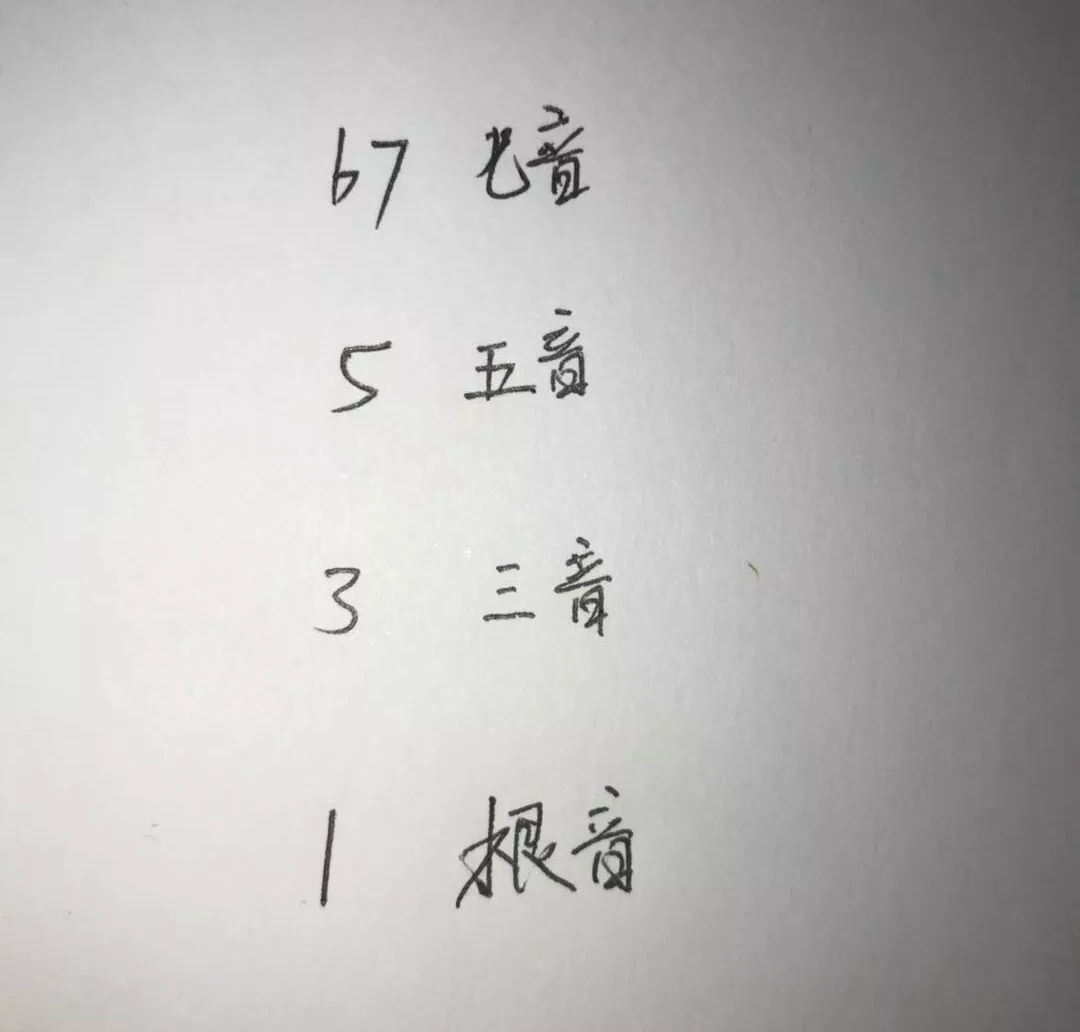 b7 七音
5 五音
3 三音
1 根音